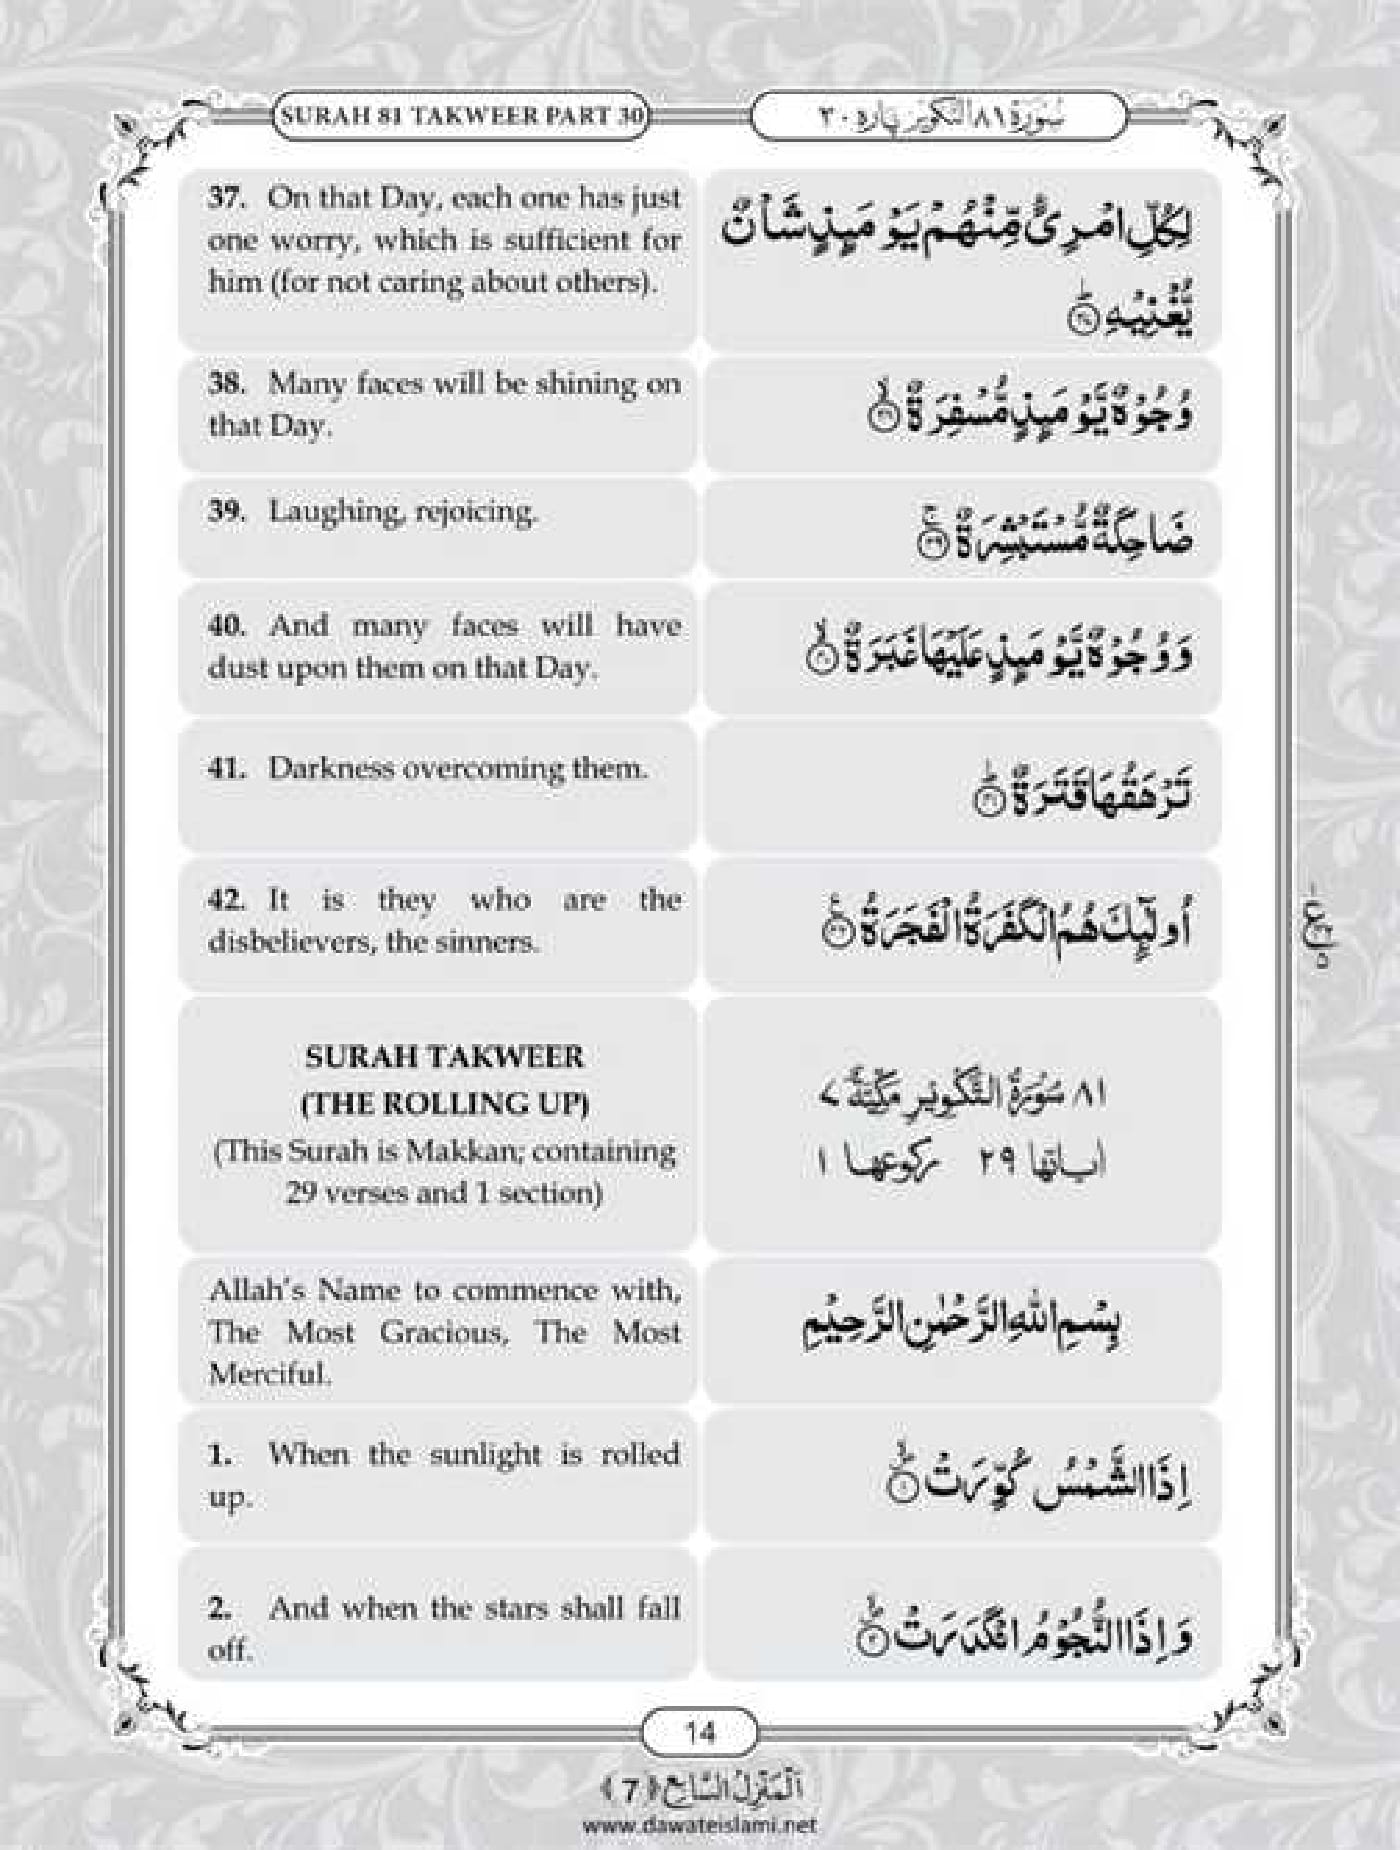 SURAH 81 TAKWEER PART 30
سُوْرَةُ ٨١ التَّكْوِيْر پاره ٣٠
37. On that Day, each one has just
one worry, which is sufficient for
him (for not caring about others).
لِكُلِّ امْرِئٍ مِّنْهُمْ يَوْمَئِذٍ شَاْنٌ
يُّغْنِيْهِ ؕ﴿۳۷﴾
38. Many faces will be shining on
that Day.
وُجُوْهٌ يَّوْمَئِذٍ مُّسْفِرَةٌ ۙ﴿۳۸﴾
39. Laughing, rejoicing.
ضَاحِكَةٌ مُّسْتَبْشِرَةٌ ۚ﴿۳۹﴾
40. And many faces will have
dust upon them on that Day.
وَ وُجُوْهٌ يَّوْمَئِذٍ عَلَيْهَا غَبَرَةٌ ۙ﴿۴۰﴾
41. Darkness overcoming them.
تَرْهَقُهَا قَتَرَةٌ ؕ﴿۴۱﴾
42. It is they who are the
disbelievers, the sinners.
اُولٰٓئِكَ هُمُ الْكَفَرَةُ الْفَجَرَةُ ﴿۴۲﴾
SURAH TAKWEER
(THE ROLLING UP)
(This Surah is Makkan; containing
29 verses and 1 section)
٨١ سُوْرَةُ التَّكْوِيْرِ مَكِّيَّةٌ ٧
اٰیاتها ٢٩ ركوعها ١
Allah's Name to commence with,
The Most Gracious, The Most
Merciful.
بِسْمِ اللّٰهِ الرَّحْمٰنِ الرَّحِيْمِ
1. When the sunlight is rolled
up.
اِذَا الشَّمْسُ كُوِّرَتْ ۪ۙ﴿۱﴾
2. And when the stars shall fall
off.
وَ اِذَا النُّجُوْمُ انْكَدَرَتْ ۪ۙ﴿۲﴾
14
اَلْمَنْزِلُ السَّابِع ﴿7﴾
www.dawateislami.net